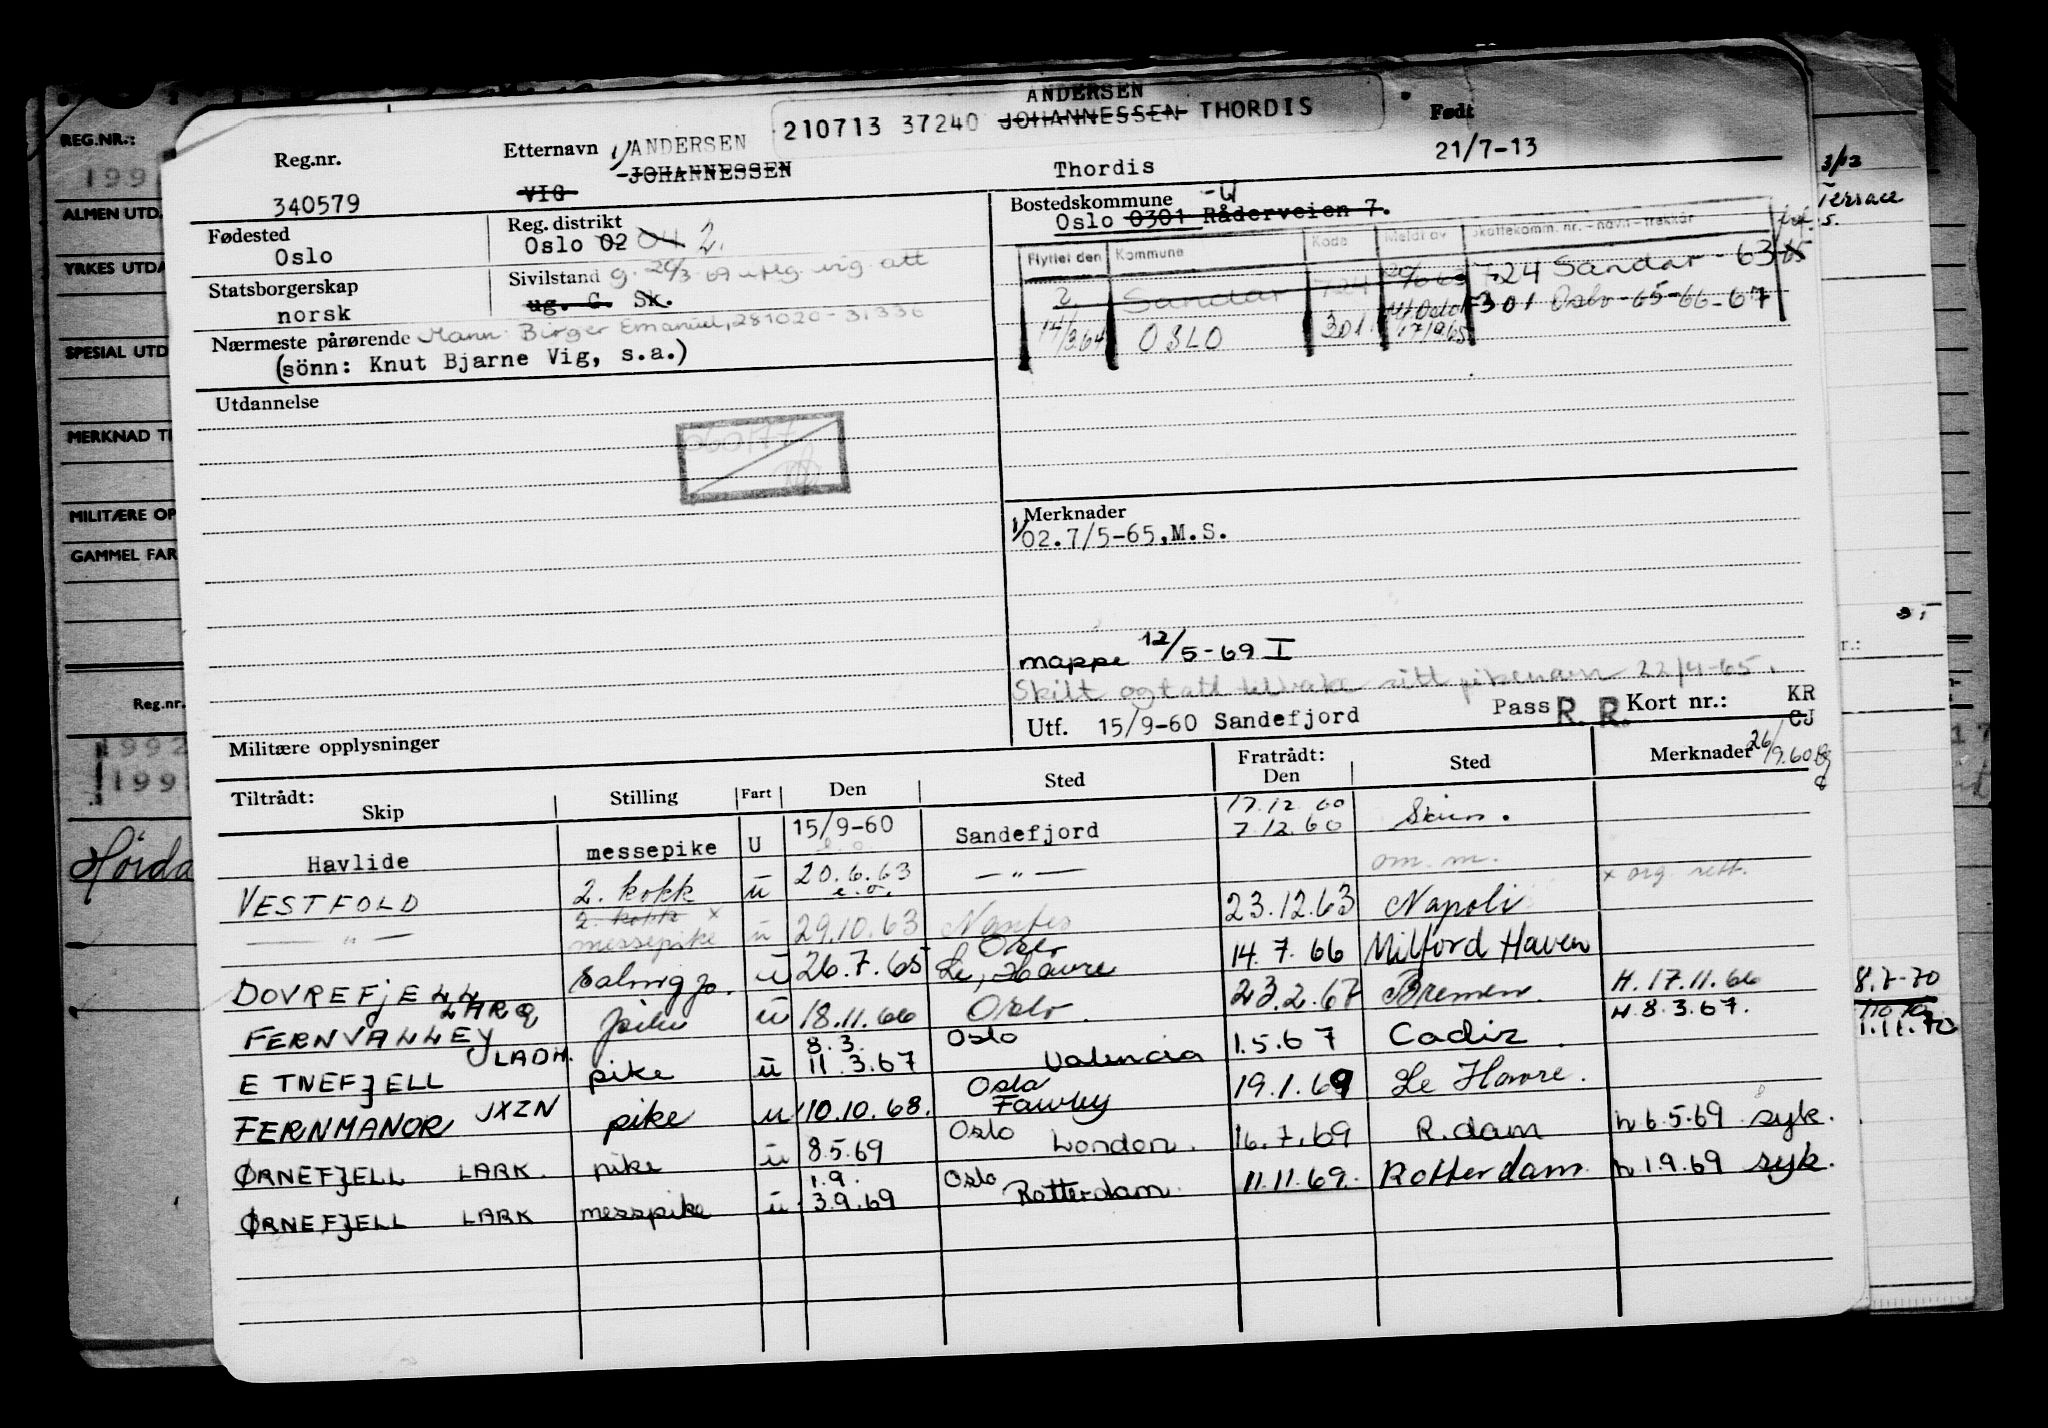 ANDERSEN
210713 37240 JOHANNESSEN THORDIS
Reg.nr. Etternavn 1/ ANDERSEN Født
JOHANNESSEN Thordis 21/7-13
340579 VIG
Fødested Reg. distrikt Bostedskommune -U
Oslo Oslo 02 04 2. Oslo 0301 Råderveien 7.
Statsborgerskap Sivilstand g. 26/3 69 utlg. vig. att
norsk ug. G. Sk.
Flyttet den Kommune Kode Meldt av Skattekomm. nr. - navn - trekkår
2 Sandar 724 724 Sandar - 63
14/3 64 OSLO 301 17/9 65 301 Oslo-65-66-67
Nærmeste pårørende Mann: Birger Emanuel, 281020-31336
(sönn: Knut Bjarne Vig, s.a.)
Utdannelse
Merknader
1/ 02.7/5-65,M.S.
mappe 12/5-69 I
Skilt og tatt tilbake sitt pikenavn 22/4-65.
Utf. 15/9-60 Sandefjord Pass R. R. Kort nr.: KR
CJ
Militære opplysninger
Tiltrådt: Skip Stilling Fart Den Sted Fratrådt: Den Sted Merknader 26/9.60
Havlide messepike U 15/9-60 Sandefjord 17.12.60 7.12.60 Skien.
VESTFOLD 2. kokk u 20.6.63 — " — om. m. x org. rett.
— " — 2. kokk x messepike u 29.10.63 e.o. Nantes 23.12.63 Napoli
DOVREFJELL salongp. u 26.7.65 Oslo Le Havre 14.7.66 Milford Haven
FERNVALLEY LARQ pike u 18.11.66 Oslo 23.2.67 Bremen. H. 17.11.66
ETNEFJELL JLADH. pike u 8.3. 11.3.67 Oslo Valencia 1.5.67 Cadiz. H. 8.3.67.
FERNMANOR JXZN pike u 10.10.68. Oslo Fawley 19.1.69 Le Havre.
ØRNEFJELL LARK. pike u 8.5.69 Oslo London. 16.7.69 R.dam h 6.5.69 syk.
ØRNEFJELL LARK messpike u 1.9. 3.9.69 Oslo Rotterdam. 11.11.69. Rotterdam h 1.9.69 syk.
REG.NR.:
199
ALMEN UTD.
YRKES UTDA
SPESIAL UTD
MERKNAD TI
MILITÆRE OP
GAMMEL FAR
Reg.nr.
1992
199
3/12
Terrace
5.
r.:
17
8.7-70
1.11.70